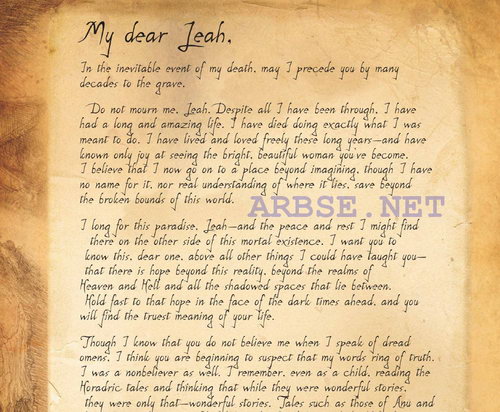 My dear Leah,
In the inevitable event of my death, may I precede you by many
decades to the grave.
Do not mourn me, Leah. Despite all I have been through, I have
had a long and amazing life. I have died doing exactly what I was
meant to do. I have lived and loved freely these long years—and have
known only joy at seeing the bright, beautiful woman you've become.
I believe that I now go on to a place beyond imagining, though I have
no name for it, nor real understanding of where it lies, save beyond
the broken bounds of this world.
ARBSE.NET
I long for this paradise, Leah—and the peace and rest I might find
there on the other side of this mortal existence. I want you to
know this, dear one, above all other things I could have taught you—
that there is hope beyond this reality, beyond the realms of
Heaven and Hell and all the shadowed spaces that lie between.
Hold fast to that hope in the face of the dark times ahead, and you
will find the truest meaning of your life.
Though I know that you do not believe me when I speak of dread
omens, I think you are beginning to suspect that my words ring of truth.
I was a nonbeliever as well. I remember, even as a child, reading the
Horadric tales and thinking that while they were wonderful stories,
they were only that—wonderful stories. Tales such as those of Anu and